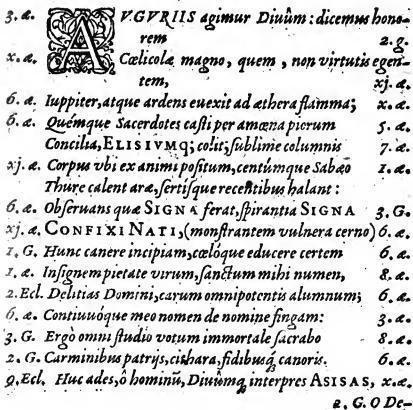 3. æ. AVGVRIIS agimur Diuûm: dicemus hono-
rem 2. g.
x. æ. Cœlicolæ magno, quem, non virtutis egen-
tem, xj. æ.
6. æ. Iuppiter, atque ardens euexit ad æthera flamma; x. æ.
6. æ. Quémque Sacerdotes casti per amœna piorum 5. æ.
Concilia, ELISIVMq; colit; sublime columnis 7. æ.
xj. æ. Corpus vbi ex animi positum, centúmque Sabæo 1. æ.
Thure calent aræ, sertisque recentibus halant:
6. æ. Obseruans quæ SIGNA ferat, spirantia SIGNA 3. G.
xj. æ. CONFIXI NATI, (monstrantem vulnera cerno) 6. æ.
1. G. Hunc canere incipiam, cœlóque educere certem 6. æ.
1. æ. Insignem pietate virum, sanctum mihi numen, 8. æ.
2. Ecl. Delitias Domini, carum omnipotentis alumnum; 6. æ.
6. æ. Continuóque meo nomen de nomine fingam: 3. æ.
3. G. Ergò omni studio votum immortale sacrabo 8. æ.
2. G. Carminibus patrijs, cithara, fidibusq́; canoris. 6. æ.
9. Ecl. Huc ades, ô hominũ, Diuûmq́; interpres ASISAS, x. æ.
2. G. O De-